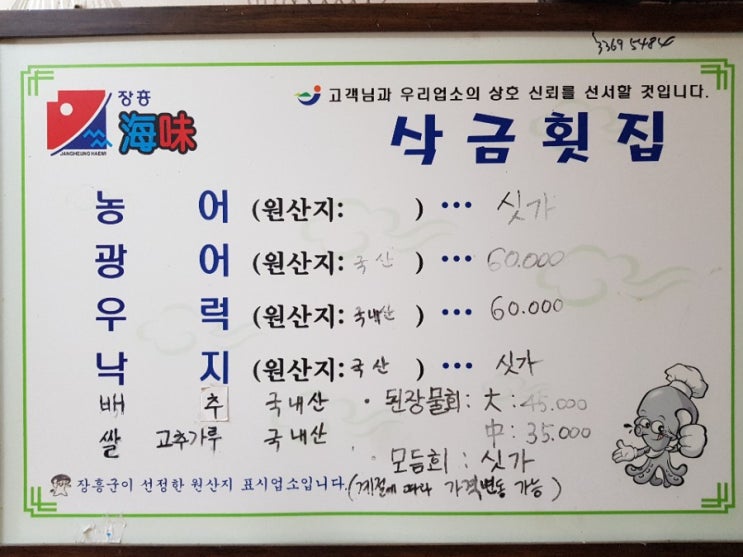 3369 5484
고객님과 우리업소의 상호 신뢰를 선서할 것입니다.
장흥
海味
JANGHEUNG HAEMI
삭금횟집
농 어 (원산지: ) ··· 싯가
광 어 (원산지: 국산 ) ··· 60.000
우 럭 (원산지: 국내산 ) ··· 60.000
낙 지 (원산지: 국산 ) ··· 싯가
배 추 국내산 · 된장물회: 大: 45.000
쌀 고추가루 국내산 中: 35.000
· 모듬회 : 싯가
장흥군이 선정한 원산지 표시업소입니다. (계절에 따라 가격변동 가능)